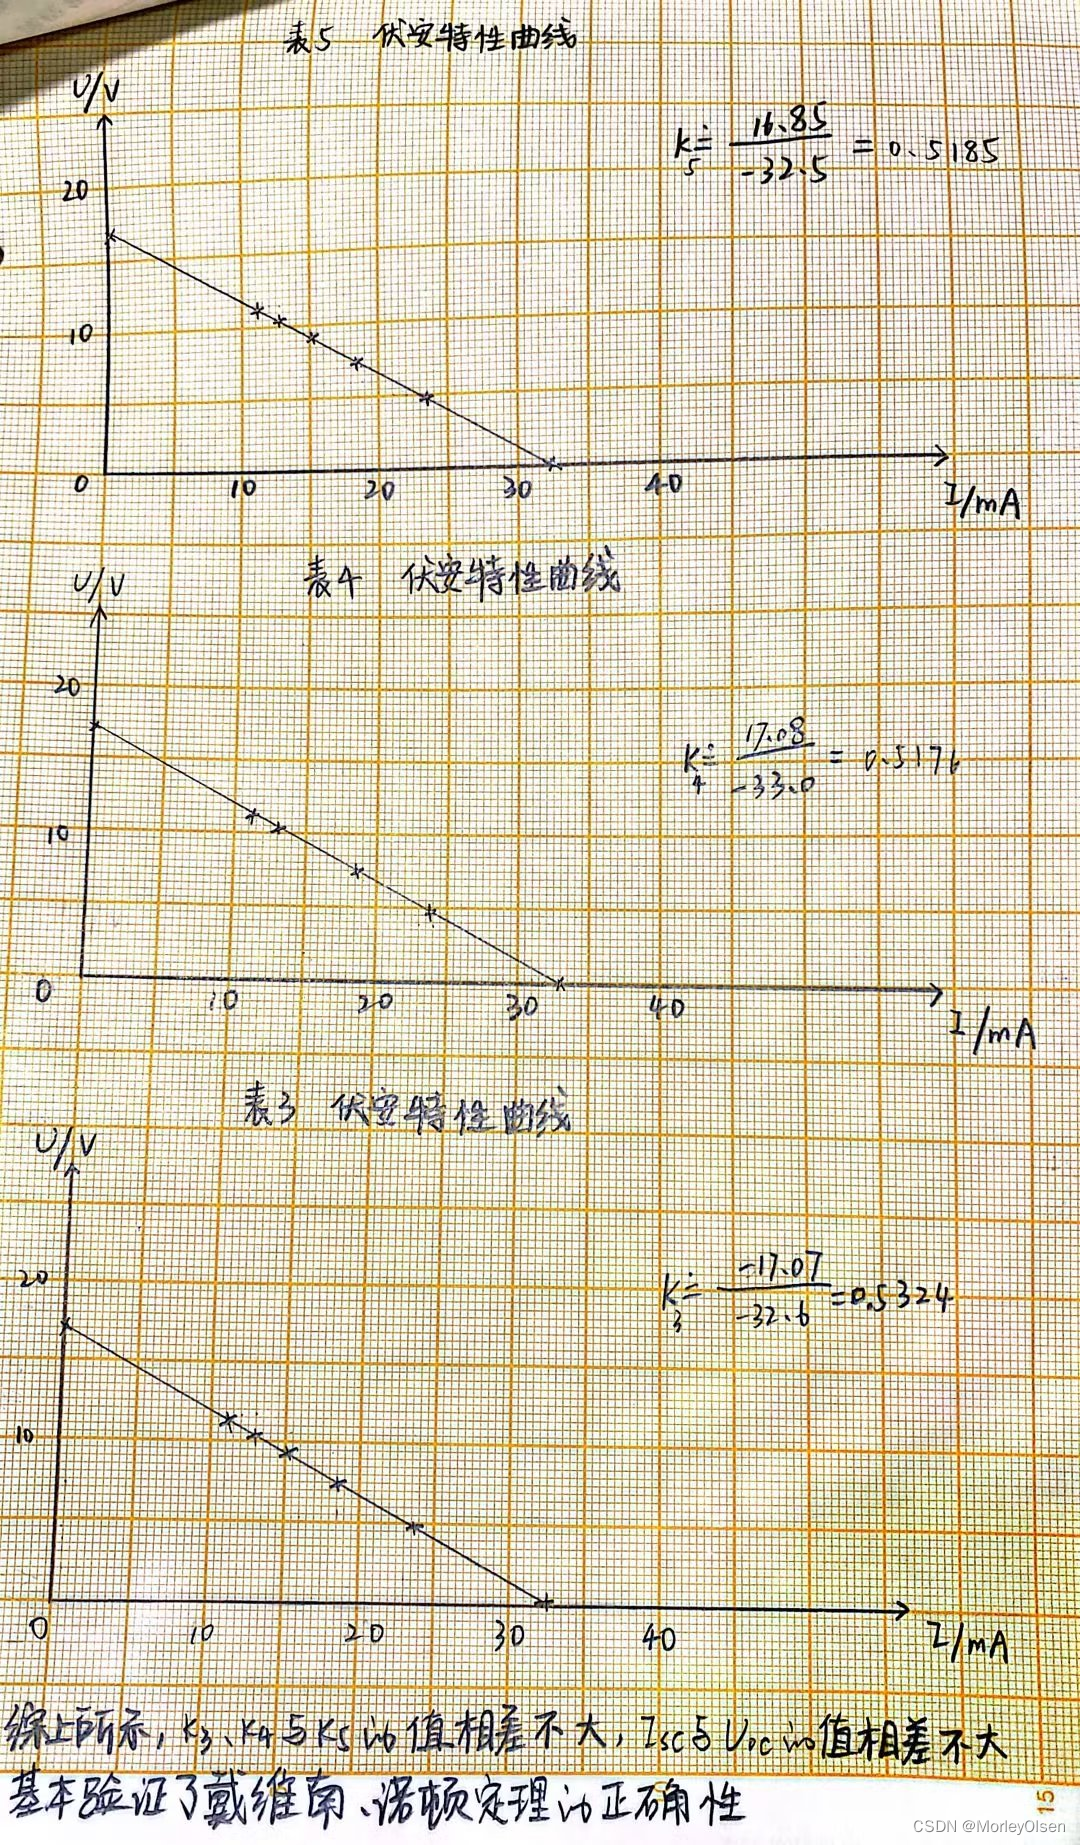 表5 伏安特性曲线
U/V
K5≐16.85/-32.5=0.5185
20
10
0 10 20 30 40
I/mA
表4 伏安特性曲线
U/V
20
K4≐17.08/-33.0=0.5176
10
0 10 20 30 40
I/mA
表3 伏安特性曲线
U/V
20
K3≐-17.07/-32.6=0.5324
10
0 10 20 30 40
I/mA
综上所示,K3、K4与K5的值相差不大,Isc与Uoc的值相差不大
基本验证了戴维南、诺顿定理的正确性
15
CSDN @MorleyOlsen